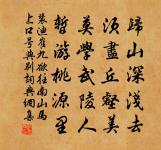 歸山深淺去
須盡丘壑美
莫學武陵人
暫游桃源里
裴迪崔九欲往南山馬
上口號與別詞典網集